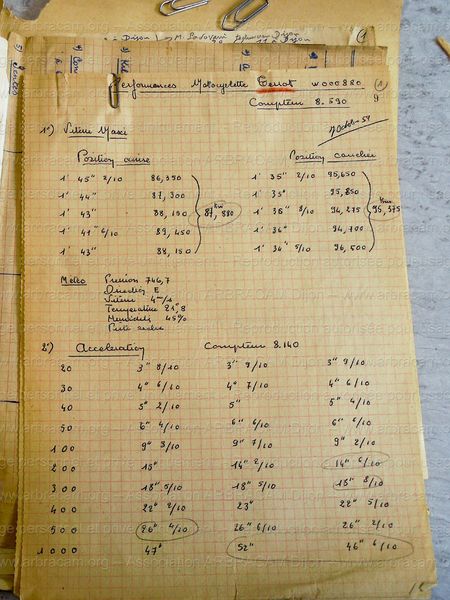 Performances Motocyclette Terrot W000880
Compteur 8.590
7 Octobre 54
1°) Vitesse Maxi
Position assise Position couchée
1' 45" 2/10 86,350 1' 35" 2/10 95,650
1' 44" 87,300 1' 35" 95,850
1' 43" 88,150 87,880 1' 36" 8/10 94,275 95,375
1' 41" 6/10 89,450 1' 36" 94,700
1' 43" 88,150 1' 34" 5/10 96,500
Météo Pression 746,7
Direction E
Vitesse 4 m/s
Température 21°,8
Humidité 45%
Piste sèche
2°) Acceleration Compteur 8.140
20 3" 8/10 3" 9/10 3" 9/10
30 4" 6/10 4" 7/10 4" 6/10
40 5" 2/10 5" 5" 4/10
50 6" 4/10 6" 6/10 6" 6/10
100 9" 3/10 9" 7/10 9" 2/10
200 15" 14" 2/10 14" 6/10
300 18" 5/10 18" 5/10 18" 8/10
400 22" 2/10 23" 22" 5/10
500 26" 4/10 26" 6/10 26" 2/10
1000 47" 52" 46" 6/10